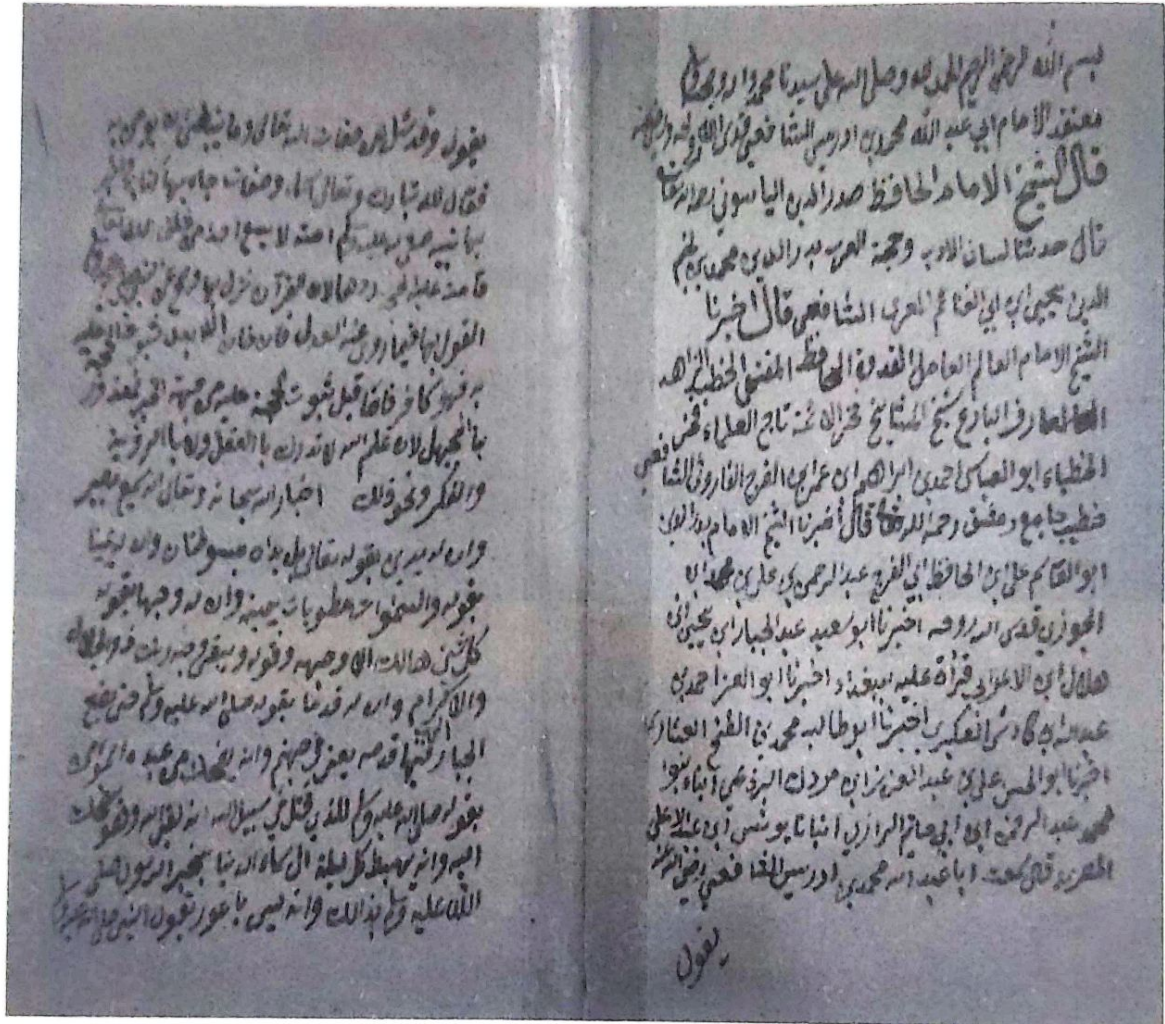 بسم الله الرحمن الرحيم الحمد لله وصلى الله على سيدنا محمد واله وصحبه وسلم
معتقد الامام ابي عبد الله محمد بن ادريس الشافعي قدس الله روحه
قال الشيخ الامام الحافظ صدر الدين الياسوفي رحمه الله تعالى
قال حدثنا لسان الادب وحجة العرب بدر الدين محمد بن
الدين يحيى ابن ابي الغنائم المعري الشافعي قال اخبرنا
الشيخ الامام العالم العامل القدوة الحافظ المفتي الخطيب الزاهد
العارف البارع شيخ المشايخ فخر الائمة تاج العلماء فخر
الخطباء ابو العباس احمد بن ابراهيم ابن عمر بن الفرج الفاروثي الشافعي
خطيب جامع دمشق رحمه الله تعالى قال اخبرنا الشيخ الامام بدر الدين
ابو القاسم علي ابن الحافظ ابي الفرج عبد الرحمن بن علي بن محمد ابن
الجوزي قدس الله روحه اخبرنا ابو سعيد عبد الجبار ابن يحيى ابن
هلال ابن الاعرابي قرأة عليه ببغداد اخبرنا ابو العز احمد بن
عبد الله ابن كادش العكبري اخبرنا ابو طالب محمد بن الفتح العشاري
اخبرنا ابو الحسن علي بن عبد العزيز ابن مردك البرذعي انباء ابو
محمد عبد الرحمن ابن ابي حاتم الرازي انبانا يونس ابن عبد الاعلى
المصري قال سمعت ابا عبد الله محمد بن ادريس الشافعي رضي الله عنه
يقول
يقول وقد سئل عن صفات الله تعالى وما ينبغي ان يومن به
فقال لله تبارك وتعالى اسماء وصفات جاء بها كتابه واخبر
بها نبيه صلى الله عليه وسلم امته لا يسع احد من خلق الله تعالى
قامت عليه الحجة ردها لان القرآن نزل بها وصح عن النبي صلى الله عليه وسلم
القول بها فيما روى عنه العدل فان خالف ذلك بعد ثبوت الحجة عليه
به فهو كافر فاما قبل ثبوت الحجة عليه من جهة الخبر فمعذور
با الجهل لان علم الله لا تدرك با العقل ولا با الروية
والفكر ونحو ذلك اخبار الله سبحانه وتعالى انه سميع بصير
وان له يدين بقوله تعالى بل يداه مبسوطتان وان له يمينا
بقوله والسموات مطويات بيمينه وان له وجها بقوله
كل شي هالك الا وجهه وقوله ويبقى وجه ربك ذو الجلال
والاكرام وان له قدما بقوله صلى الله عليه وسلم حتى يضع
الجبار فيها قدمه يعني في جهنم وانه يضحك من عبده المومن
بقوله صلى الله عليه وسلم للذي قتل في سبيل الله انه لقي الله وهو يضحك
اليه وانه يهبط كل ليلة الى سماء الدنيا بخبر الرسول صلى
الله عليه وسلم بذالك وانه ليس با عور بقول النبي صلى الله عليه وسلم